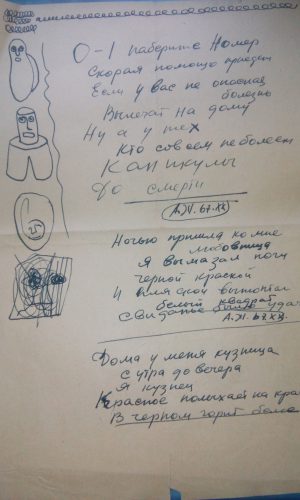 0-1 наберите Номер
Скорая помощь приедет
Если у вас не опасная
болезнь
Вылечат на дому
Ну а у тех
Кто совсем не болеет
Каникулы
До смерти
Ночью пришла ко мне
любовница
Я вымазал ноги
черной краской
И
белый квадрат
Свиданье
Дома у меня кузница
С утра до вечера
Я кузнец
Красное полыхает на
В черном горит